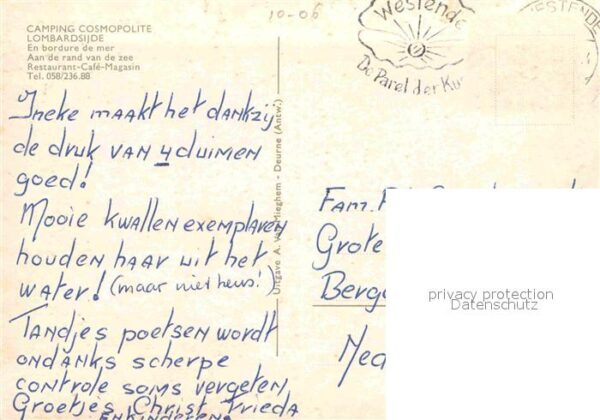 10-06
CAMPING COSMOPOLITE
LOMBARDSIJDE
En bordure de mer
Aan de rand van de zee
Restaurant-Café-Magasin
Tel. 058/236.88
Westende
De Parel der Ku
WESTENDE
Ineke maakt het dankzij
de druk van 4 duimen
goed!
Mooie kwallenexemplaren
houden haar uit het
water! (maar niet heus!)
Tandjes poetsen wordt
ondanks scherpe
controle soms vergeten.
Groetjes, Christ, Frieda
EN KINDEREN.
Uitgave A. Van Mieghem - Deurne (Antw.)
Fam.
Grote
Berg
Ned
privacy protection
Datenschutz